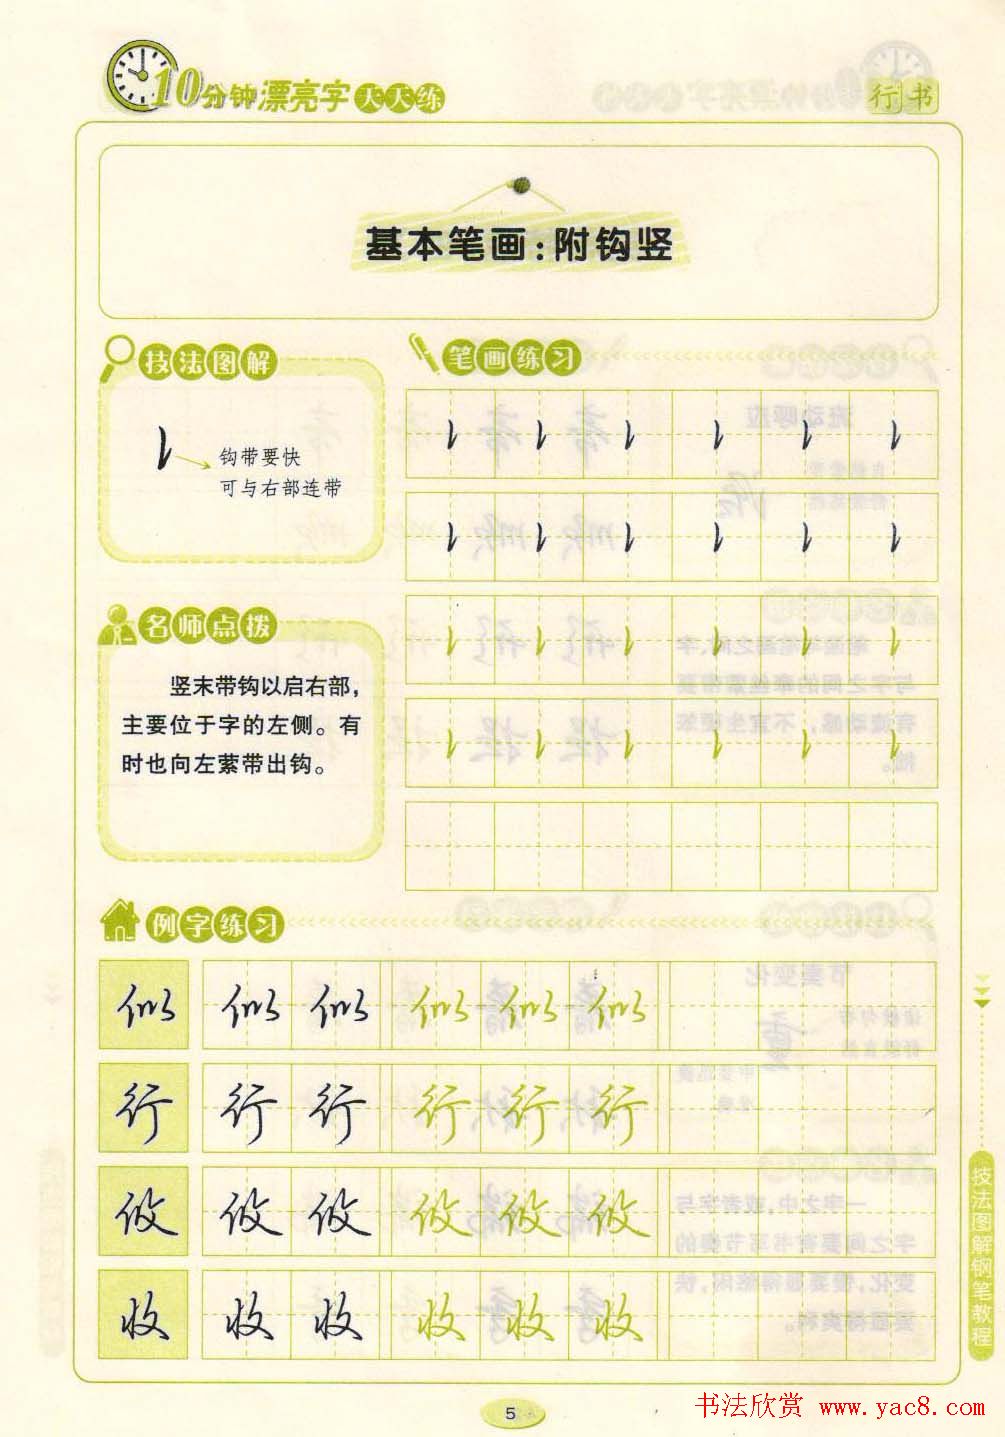 10分钟漂亮字天天练
行书
基本笔画:附钩竖
技法图解
钩带要快
可与右部连带
笔画练习
名师点拨
竖末带钩以启右部,
主要位于字的左侧。有
时也向左萦带出钩。
例字练习
似 似 似 似 似 似
行 行 行 行 行 行
攸 攸 攸 攸 攸 攸
收 收 收 收 收 收
技法图解钢笔教程
5
书法欣赏 www.yac8.com